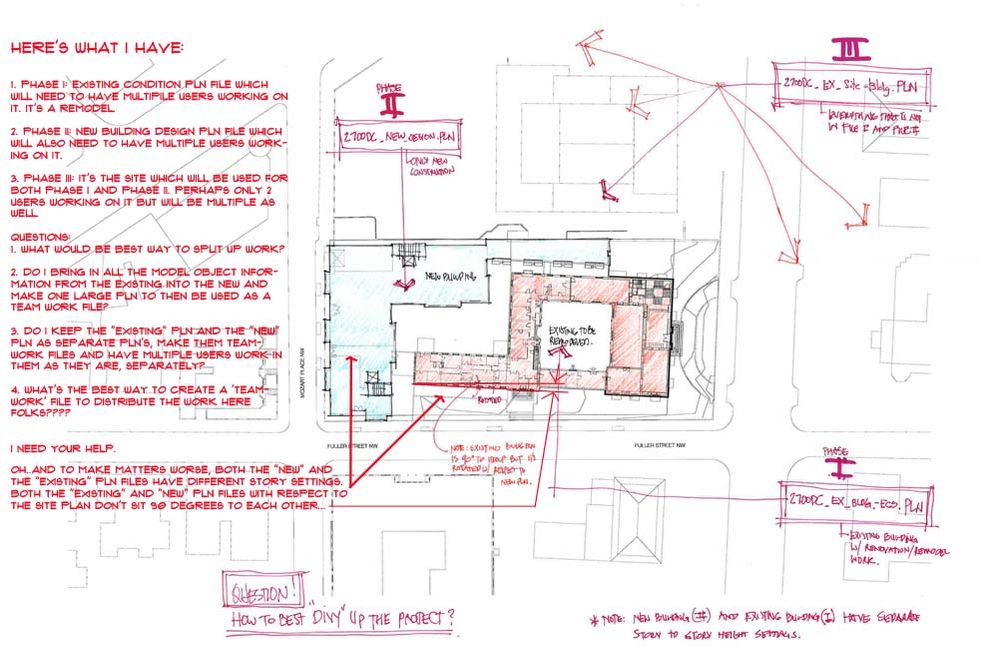 HERE'S WHAT I HAVE:
1. PHASE I: EXISTING CONDITION PLN FILE WHICH
WILL NEED TO HAVE MULTIPLE USERS WORKING ON
IT. IT'S A REMODEL
2. PHASE II: NEW BUILDING DESIGN PLN FILE WHICH
WILL ALSO NEED TO HAVE MULTIPLE USERS WORK-
ING ON IT.
3. PHASE III: IT'S THE SITE WHICH WILL BE USED FOR
BOTH PHASE I AND PHASE II. PERHAPS ONLY 2
USERS WORKING ON IT BUT WILL BE MULTIPLE AS
WELL
QUESTIONS:
1. WHAT WOULD BE BEST WAY TO SPLIT UP WORK?
2. DO I BRING IN ALL THE MODEL OBJECT INFOR-
MATION FROM THE EXISTING INTO THE NEW AND
MAKE ONE LARGE PLN TO THEN BE USED AS A
TEAM WORK FILE?
3. DO I KEEP THE "EXISTING" PLN AND THE "NEW"
PLN AS SEPARATE PLN'S, MAKE THEM TEAM-
WORK FILES AND HAVE MULTIPLE USERS WORK IN
THEM AS THEY ARE, SEPARATELY?
4. WHAT'S THE BEST WAY TO CREATE A 'TEAM-
WORK' FILE TO DISTRIBUTE THE WORK HERE
FOLKS????
I NEED YOUR HELP.
OH..AND TO MAKE MATTERS WORSE, BOTH THE "NEW" AND
THE "EXISTING" PLN FILES HAVE DIFFERENT STORY SETTINGS.
BOTH THE "EXISTING" AND "NEW" PLN FILES WITH RESPECT TO
THE SITE PLAN DON'T SIT 90 DEGREES TO EACH OTHER...
PHASE
II
2700DC_NEW_DEMON.PLN
ONLY NEW
CONSTRUCTION
III
2700DC_EX_Site-Bldg.PLN
EVERYTHING THAT IS NOT
IN FILE I AND FILE II
NEW BUILDING
EXISTING TO BE
REMODELED.
ROTATED
MOZART PLACE NW
FULLER STREET NW
FULLER STREET NW
NOTE: EXISTING BLDG PLN
IS 90° TO ITSELF BUT IT'S
ROTATED W/ RESPECT TO
NEW PLN.
PHASE
I
2700DC_EX_BLDG-ECS.PLN
EXISTING BUILDING
W/ RENOVATION/REMODEL
WORK.
QUESTION!
HOW TO BEST "DIVY" UP THE PROJECT?
* NOTE: NEW BUILDING (II) AND EXISTING BUILDING (I) HAVE SEPARATE
STORY TO STORY HEIGHT SETTINGS.